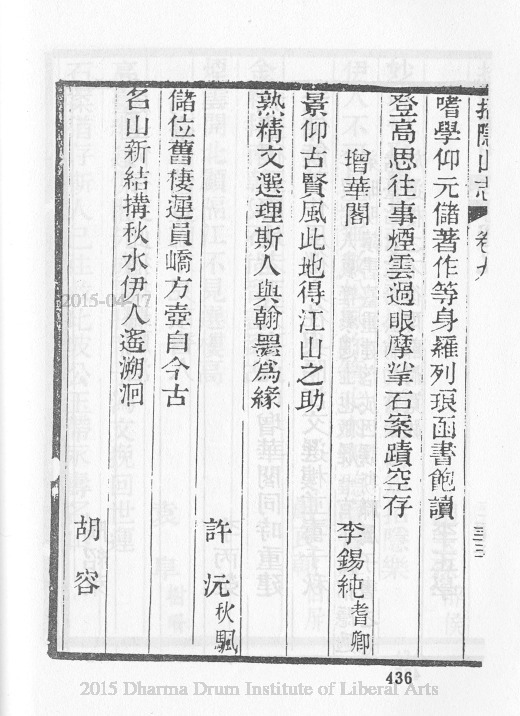 招隱山志 卷九 三三
嗜學仰元儲著作等身羅列琅函書飽讀
登高思往事煙雲過眼摩挲石案蹟空存
李錫純耆卿
增華閣
景仰古賢風此地得江山之助
熟精文選理斯人與翰墨爲緣
許沅秋颿
儲位舊棲遲員嶠方壺自今古
名山新結搆秋水伊人遙溯洄
胡容
2015-04-17
436
2015 Dharma Drum Institute of Liberal Arts